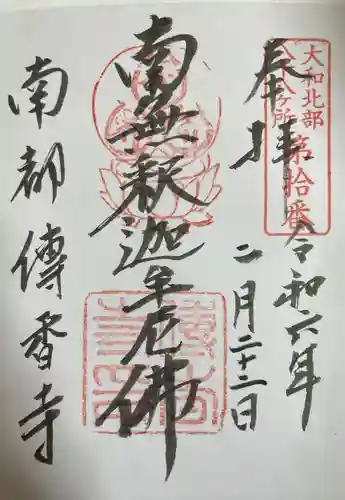 奉拝
大和北部
八十八ヶ所
第拾番
令和六年
二月二十二日
南無釈迦牟尼佛
南都傳香寺